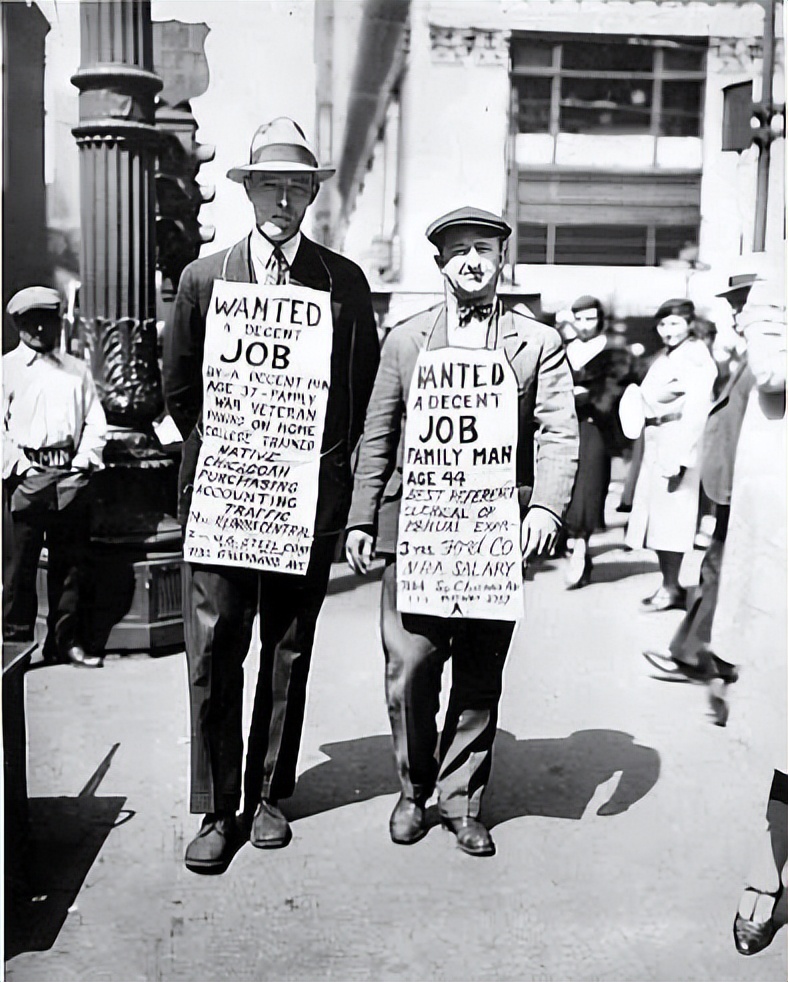 WANTED
A DECENT
JOB
BY A DECENT MAN
AGE 37 - FAMILY
WAR VETERAN
ON HOME
COLLEGE TRAINED
NATIVE
CHICAGOAN
PURCHASING
ACCOUNTING
TRAFFIC
CENTRAL
WANTED
A DECENT
JOB
FAMILY MAN
AGE 44
BEST REFERENCE
CLERICAL OR
3 YRS FORD CO
NRA SALARY